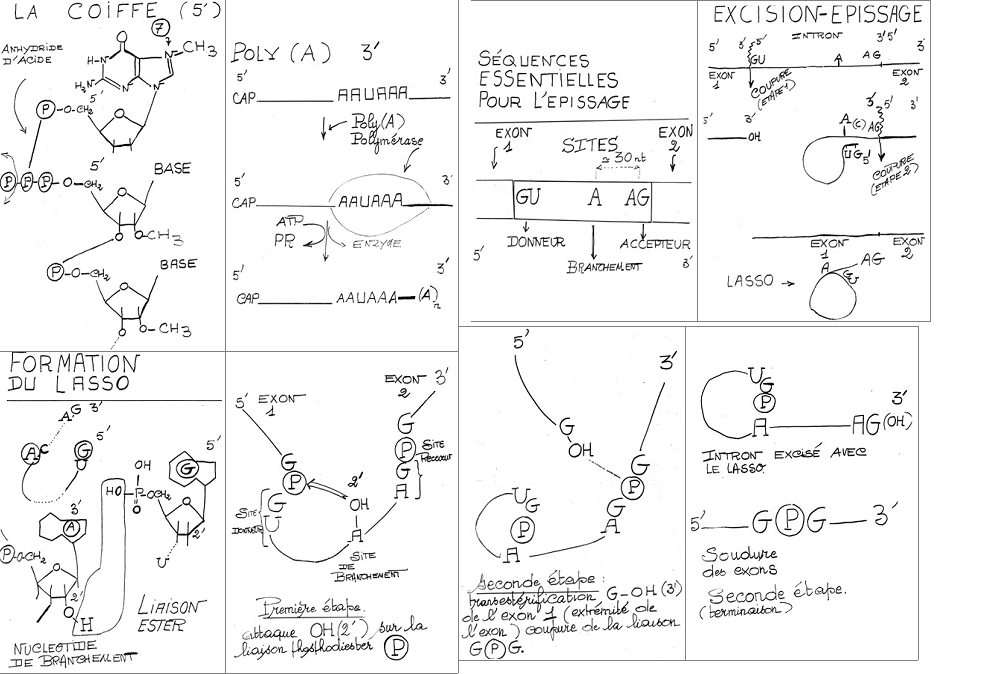 LA COIFFE (5')
ANHYDRIDE
D'ACIDE
O
7
7
N
CH3
HN
H2N
N
N
5'
P-O-CH2
O
5'
P P P-O-CH2
BASE
O
O
O-CH3
P-O-CH2
BASE
O
O
O-CH3
POLY (A) 3'
5' 3'
CAP AAUAAA
Poly(A)
Polymérase
5' 3'
CAP AAUAAA
ATP
PPi
ENZYME
5' 3'
CAP AAUAAA (A)n
SÉQUENCES
ESSENTIELLES
POUR L'EPISSAGE
EXON
1
SITES
EXON
2
≃ 30 nt
GU A AG
DONNEUR
ACCEPTEUR
BRANCHEMENT
5' 3'
EXCISION-EPISSAGE
INTRON
5' 3' 5' 3' 5' 3'
GU A AG
EXON
1
EXON
2
COUPURE
(ETAPE 1)
5' 3'
OH
3' 5' 3'
A (C) AG
UG 5'
COUPURE
(ETAPE 2)
EXON
1
EXON
2
LASSO
A AG
GU
FORMATION
DU LASSO
AG 3'
A C
G 5'
U
OH
HO-P-OCH2
O
5'
G
O
2'
U
3'
A
P-OCH2
O
2'
O
H
LIAISON
ESTER
NUCLEOTIDE
DE BRANCHEMENT
5' EXON
1
EXON 3'
2
G
P
G
U
SITE
DONNEUR
2'
OH
A
SITE
DE
BRANCHEMENT
G
P
G
A
SITE
Première étape.
attaque OH(2') sur la
liaison phosphodiester P
5'
3'
G
OH
G
P
G
A
U
G
P
A
Seconde étape :
transestérification G-OH (3')
de l'exon 1 (extrémité de
l'exon) coupure de la liaison
G P G.
U
G
P
A
3'
AG(OH)
INTRON EXCISÉ AVEC
LE LASSO.
5' G P G 3'
Soudure
des exons
Seconde étape.
(terminaison)